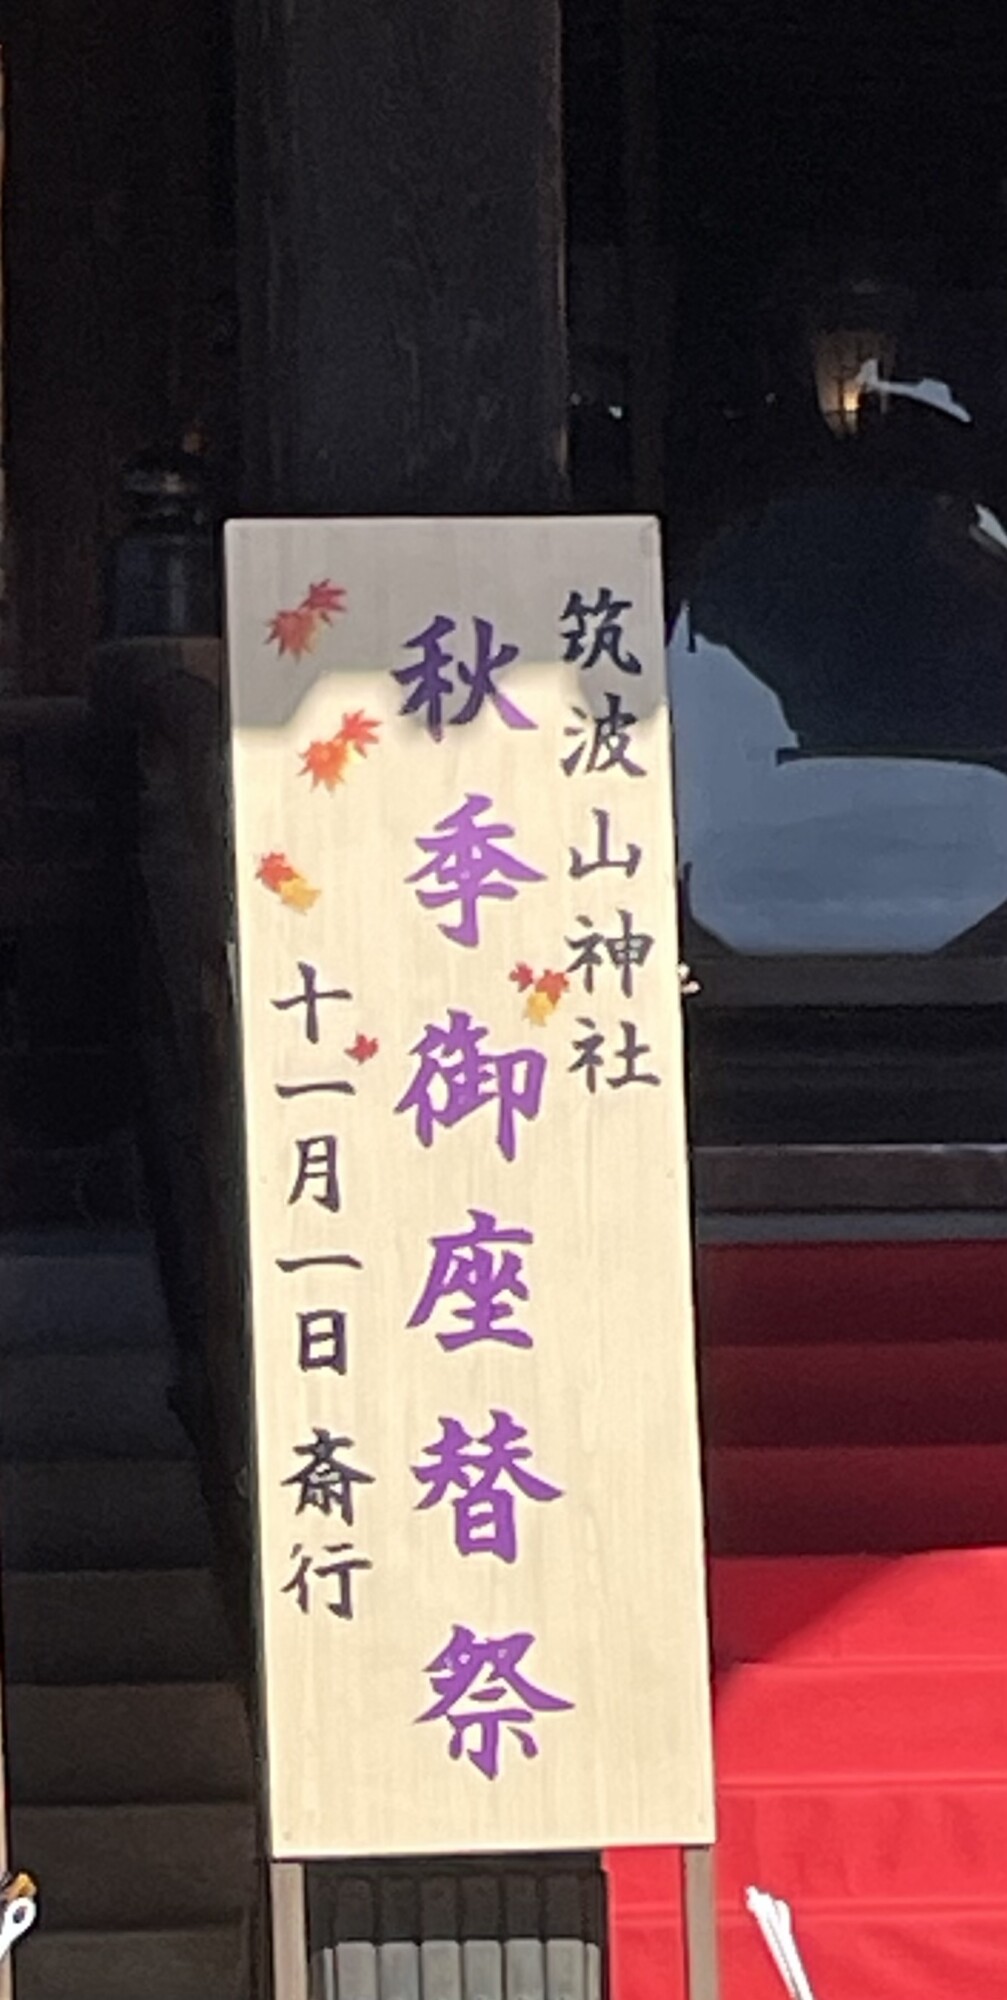 筑波山神社
秋季御座替祭
十一月一日 斎行